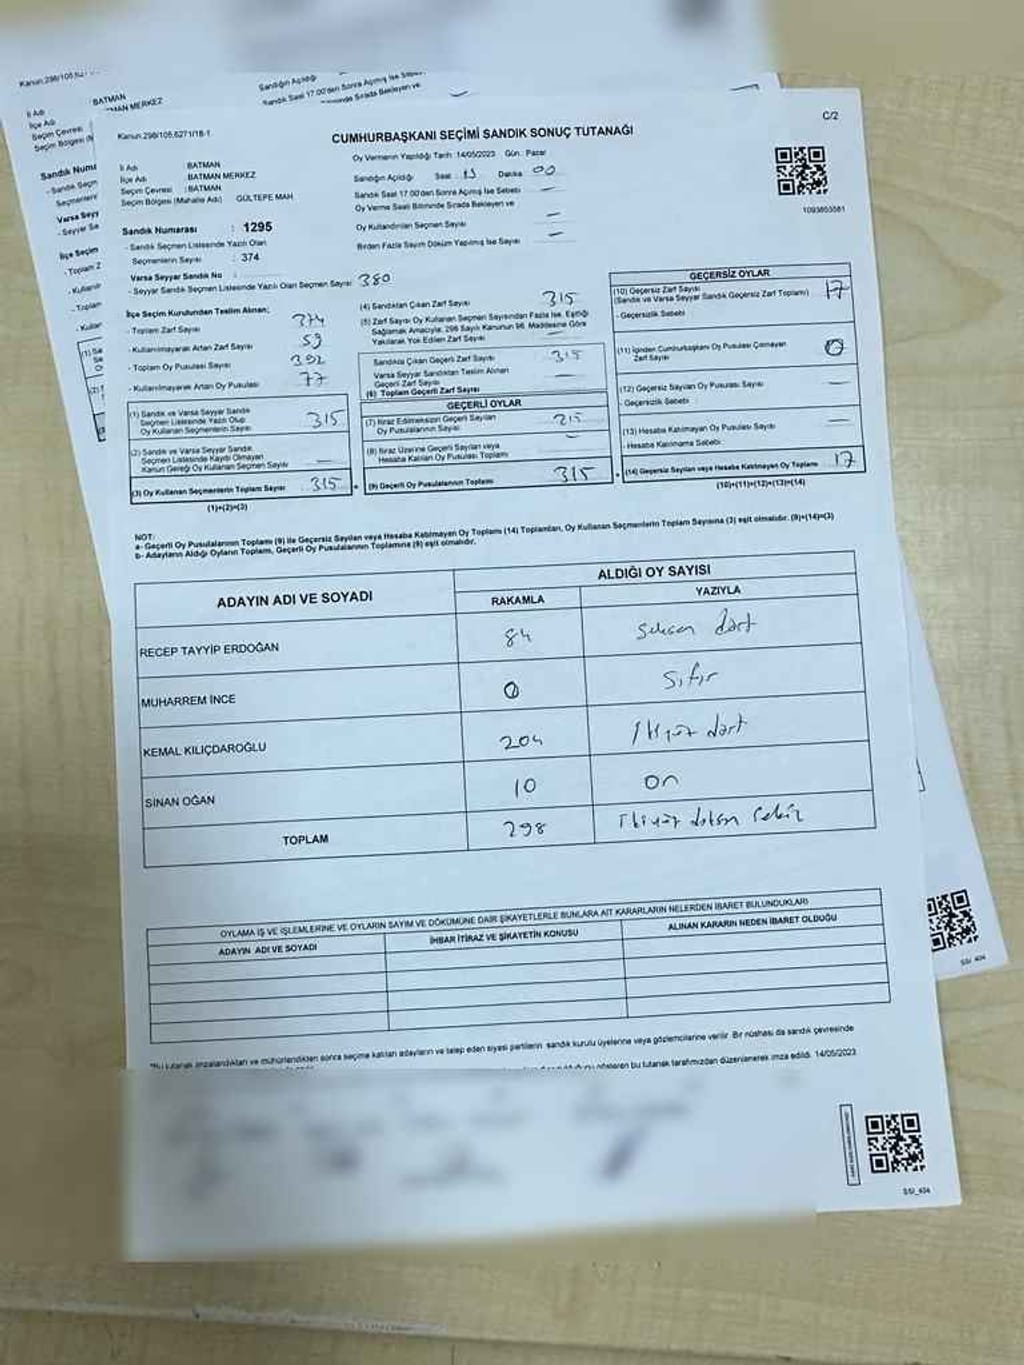 Kanun:298/105,6271/18-1
C/2
CUMHURBAŞKANI SEÇİMİ SANDIK SONUÇ TUTANAĞI
İl Adı : BATMAN
İlçe Adı : BATMAN MERKEZ
Seçim Çevresi : BATMAN
Seçim Bölgesi (Mahalle Adı) GÜLTEPE MAH.
Oy Vermenin Yapıldığı Tarih :14/05/2023 Gün : Pazar
Sandığın Açıldığı Saat : Dakika 00
Sandık Saat 17.00'den Sonra Açılmış İse Sebebi —
Oy Verme Saati Bitiminde Sırada Bekleyen ve
Oy Kullandırılan Seçmen Sayısı —
Birden Fazla Sayım Döküm Yapılmış İse Sayısı —
1093803581
Sandık Numarası : 1295
- Sandık Seçmen Listesinde Yazılı Olan
Seçmenlerin Sayısı : 374
Varsa Seyyar Sandık No :
- Seyyar Sandık Seçmen Listesinde Yazılı Olan Seçmen Sayısı : 380
İlçe Seçim Kurulundan Teslim Alınan;
- Toplam Zarf Sayısı 374
- Kullanılmayarak Artan Zarf Sayısı 59
- Toplam Oy Pusulası Sayısı 392
- Kullanılmayarak Artan Oy Pusulası 77
(1) Sandık ve Varsa Seyyar Sandık
Seçmen Listesinde Yazılı Olup
Oy Kullanan Seçmenlerin Sayısı 315
(2) Sandık ve Varsa Seyyar Sandık
Seçmen Listesinde Kayıtlı Olmayan
Kanun Gereği Oy Kullanan Seçmen Sayısı —
(3) Oy Kullanan Seçmenlerin Toplam Sayısı 315
(1)+(2)=(3)
(4) Sandıktan Çıkan Zarf Sayısı 315
(5) Zarf Sayısı Oy Kullanan Seçmen Sayısından Fazla İse, Eşitliği
Sağlamak Amacıyla; 298 Sayılı Kanunun 98. Maddesine Göre
Yakılarak Yok Edilen Zarf Sayısı —
Sandıkta Çıkan Geçerli Zarf Sayısı 315
Varsa Seyyar Sandıktan Teslim Alınan
Geçerli Zarf Sayısı —
(6) Toplam Geçerli Zarf Sayısı
GEÇERLİ OYLAR
(7) İtiraz Edilmeksizin Geçerli Sayılan
Oy Pusulalarının Sayısı 315
(8) İtiraz Üzerine Geçerli Sayılan veya
Hesaba Katılan Oy Pusulası Toplamı —
(9) Geçerli Oy Pusulalarının Toplamı 315
GEÇERSİZ OYLAR
(10) Geçersiz Zarf Sayısı
(Sandık ve Varsa Seyyar Sandık Geçersiz Zarf Toplamı) 17
- Geçersizlik Sebebi
(11) İçinden Cumhurbaşkanı Oy Pusulası Çıkmayan
Zarf Sayısı 0
(12) Geçersiz Sayılan Oy Pusulası Sayısı —
- Geçersizlik Sebebi
(13) Hesaba Katılmayan Oy Pusulası Sayısı —
- Hesaba Katılmama Sebebi
(14) Geçersiz Sayılan veya Hesaba Katılmayan Oy Toplamı 17
(10)+(11)+(12)+(13)=(14)
NOT:
a- Geçerli Oy Pusulalarının Toplamı (9) ile Geçersiz Sayılan veya Hesaba Katılmayan Oy Toplamı (14) Toplamları, Oy Kullanan Seçmenlerin Toplam Sayısına (3) eşit olmalıdır. (9)+(14)=(3)
b- Adayların Aldığı Oyların Toplamı, Geçerli Oy Pusulalarının Toplamına (9) eşit olmalıdır.
ADAYIN ADI VE SOYADI
ALDIĞI OY SAYISI
RAKAMLA YAZIYLA
RECEP TAYYİP ERDOĞAN 84 Seksen dört
MUHARREM İNCE 0 Sıfır
KEMAL KILIÇDAROĞLU 204 İkiyüz dört
SİNAN OĞAN 10 on
TOPLAM 298 İkiyüz doksan sekiz
OYLAMA İŞ VE İŞLEMLERİNE VE OYLARIN SAYIM VE DÖKÜMÜNE DAİR ŞİKAYETLERLE BUNLARA AİT KARARLARIN NELERDEN İBARET BULUNDUKLARI
ADAYIN ADI VE SOYADI İHBAR İTİRAZ VE ŞİKAYETİN KONUSU ALINAN KARARIN NEDEN İBARET OLDUĞU
*Bu tutanak imzalandıktan ve mühürlendikten sonra seçime katılan adayların ve talep eden siyasi partilerin sandık kurulu üyelerine veya gözlemcilerine verilir. Bir nüshası da sandık çevresinde
gösteren bu tutanak tarafımızdan düzenlenerek imza edildi. 14/05/2023
SSI_404
BATMAN
İl Adı
İlçe Adı
Seçim Çevresi
Sandığın Açıldığı
SSI_404